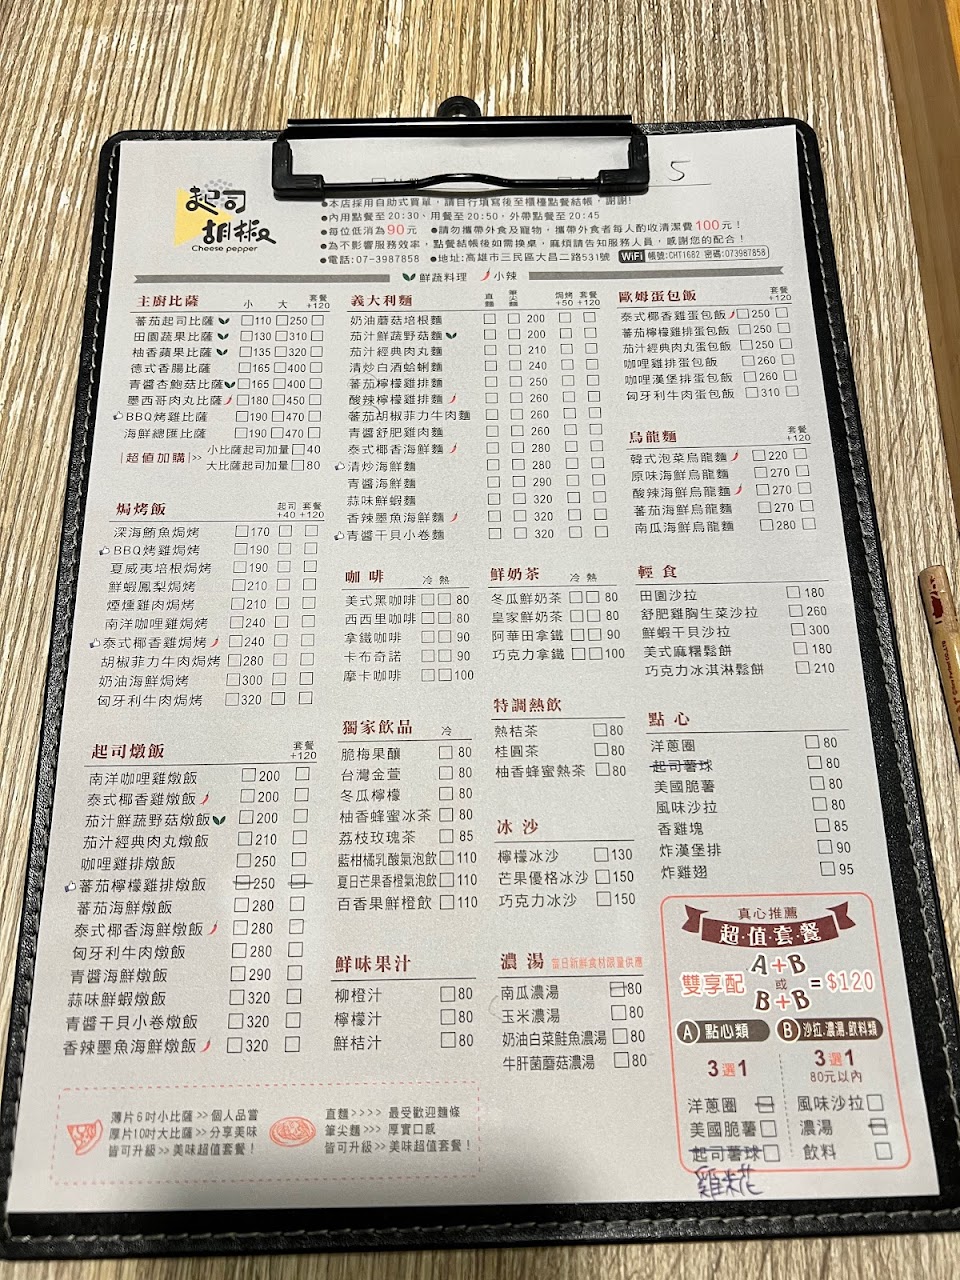 5
起司
胡椒
Cheese pepper
●本店採用自助式買單，請自行填寫後至櫃檯點餐結帳，謝謝!
●內用點餐至20:30、用餐至20:50，外帶點餐至20:45
●每位低消為90元 ●請勿攜帶外食及寵物，攜帶外食者每人酌收清潔費100元！
●為不影響服務效率，點餐結帳後如需換桌，麻煩請告知服務人員，感謝您的配合！
●電話:07-3987858 ●地址:高雄市三民區大昌二路531號 WiFi 帳號:CHT1682 密碼:073987858
鮮蔬料理 小辣
主廚比薩 小 大 套餐+120
蕃茄起司比薩 □110 □250 □
田園蔬果比薩 □130 □310 □
柚香蘋果比薩 □135 □320 □
德式香腸比薩 □165 □400 □
青醬杏鮑菇比薩 □165 □400 □
墨西哥肉丸比薩 □180 □450 □
BBQ烤雞比薩 □190 □470 □
海鮮總匯比薩 □190 □470 □
超值加購 >> 小比薩起司加量 □40
大比薩起司加量 □80
焗烤飯 起司+40 套餐+120
深海鮪魚焗烤 □170 □ □
BBQ烤雞焗烤 □190 □ □
夏威夷培根焗烤 □190 □ □
鮮蝦鳳梨焗烤 □210 □ □
煙燻雞肉焗烤 □210 □ □
南洋咖哩雞焗烤 □240 □ □
泰式椰香雞焗烤 □240 □ □
胡椒菲力牛肉焗烤 □280 □ □
奶油海鮮焗烤 □300 □ □
匈牙利牛肉焗烤 □320 □ □
起司燉飯 套餐+120
南洋咖哩雞燉飯 □200 □
泰式椰香雞燉飯 □200 □
茄汁鮮蔬野菇燉飯 □200 □
茄汁經典肉丸燉飯 □210 □
咖哩雞排燉飯 □250 □
蕃茄檸檬雞排燉飯 □250 □
蕃茄海鮮燉飯 □280 □
泰式椰香海鮮燉飯 □280 □
匈牙利牛肉燉飯 □280 □
青醬海鮮燉飯 □290 □
蒜味鮮蝦燉飯 □320 □
青醬干貝小卷燉飯 □320 □
香辣墨魚海鮮燉飯 □320 □
義大利麵 直麵 筆尖麵 焗烤+50 套餐+120
奶油蘑菇培根麵 □ □ 200 □ □
茄汁鮮蔬野菇麵 □ □ 200 □ □
茄汁經典肉丸麵 □ □ 210 □ □
清炒白酒蛤蜊麵 □ □ 240 □ □
蕃茄檸檬雞排麵 □ □ 250 □ □
酸辣檸檬雞排麵 □ □ 260 □ □
蕃茄胡椒菲力牛肉麵 □ □ 260 □ □
青醬舒肥雞肉麵 □ □ 260 □ □
泰式椰香海鮮麵 □ □ 280 □ □
清炒海鮮麵 □ □ 280 □ □
青醬海鮮麵 □ □ 290 □ □
蒜味鮮蝦麵 □ □ 320 □ □
香辣墨魚海鮮麵 □ □ 320 □ □
青醬干貝小卷麵 □ □ 320 □ □
歐姆蛋包飯 套餐+120
泰式椰香雞蛋包飯 □250 □
蕃茄檸檬雞排蛋包飯 □250 □
茄汁經典肉丸蛋包飯 □250 □
咖哩雞排蛋包飯 □260 □
咖哩漢堡排蛋包飯 □260 □
匈牙利牛肉蛋包飯 □310 □
烏龍麵 套餐+120
韓式泡菜烏龍麵 □220 □
原味海鮮烏龍麵 □270 □
酸辣海鮮烏龍麵 □270 □
蕃茄海鮮烏龍麵 □270 □
南瓜海鮮烏龍麵 □280 □
咖啡 冷 熱
美式黑咖啡 □□ 80
西西里咖啡 □□ 80
拿鐵咖啡 □□ 90
卡布奇諾 □□ 90
摩卡咖啡 □□100
鮮奶茶 冷 熱
冬瓜鮮奶茶 □□ 80
皇家鮮奶茶 □□ 80
阿華田拿鐵 □□ 90
巧克力拿鐵 □□100
輕食
田園沙拉 □ 180
舒肥雞胸生菜沙拉 □ 260
鮮蝦干貝沙拉 □ 300
美式麻糬鬆餅 □ 180
巧克力冰淇淋鬆餅 □ 210
獨家飲品 冷
脆梅果釀 □80
台灣金萱 □80
冬瓜檸檬 □80
柚香蜂蜜冰茶 □80
荔枝玫瑰茶 □85
藍柑橘乳酸氣泡飲 □110
夏日芒果香橙氣泡飲 □110
百香果鮮橙飲 □110
特調熱飲
熱桔茶 □80
桂圓茶 □80
柚香蜂蜜熱茶 □80
冰沙
檸檬冰沙 □130
芒果優格冰沙 □150
巧克力冰沙 □150
點心
洋蔥圈 □80
起司薯球 □80
美國脆薯 □80
風味沙拉 □80
香雞塊 □85
炸漢堡排 □90
炸雞翅 □95
鮮味果汁
柳橙汁 □80
檸檬汁 □80
鮮桔汁 □80
濃湯 每日新鮮食材限量供應
南瓜濃湯 □80
玉米濃湯 □80
奶油白菜鮭魚濃湯 □80
牛肝菌蘑菇濃湯 □80
真心推薦
超·值·套·餐
雙享配 A+B 或 B+B =$120
A 點心類 B 沙拉.濃湯.飲料類
3選1 3選1
80元以內
洋蔥圈 □ 風味沙拉 □
美國脆薯 □ 濃湯 □
起司薯球 □ 飲料 □
雞米花
薄片6吋小比薩>>個人品嘗
厚片10吋大比薩>>分享美味
皆可升級>>美味超值套餐！
直麵>>>> 最受歡迎麵條
筆尖麵>>> 厚實口感
皆可升級>> 美味超值套餐！